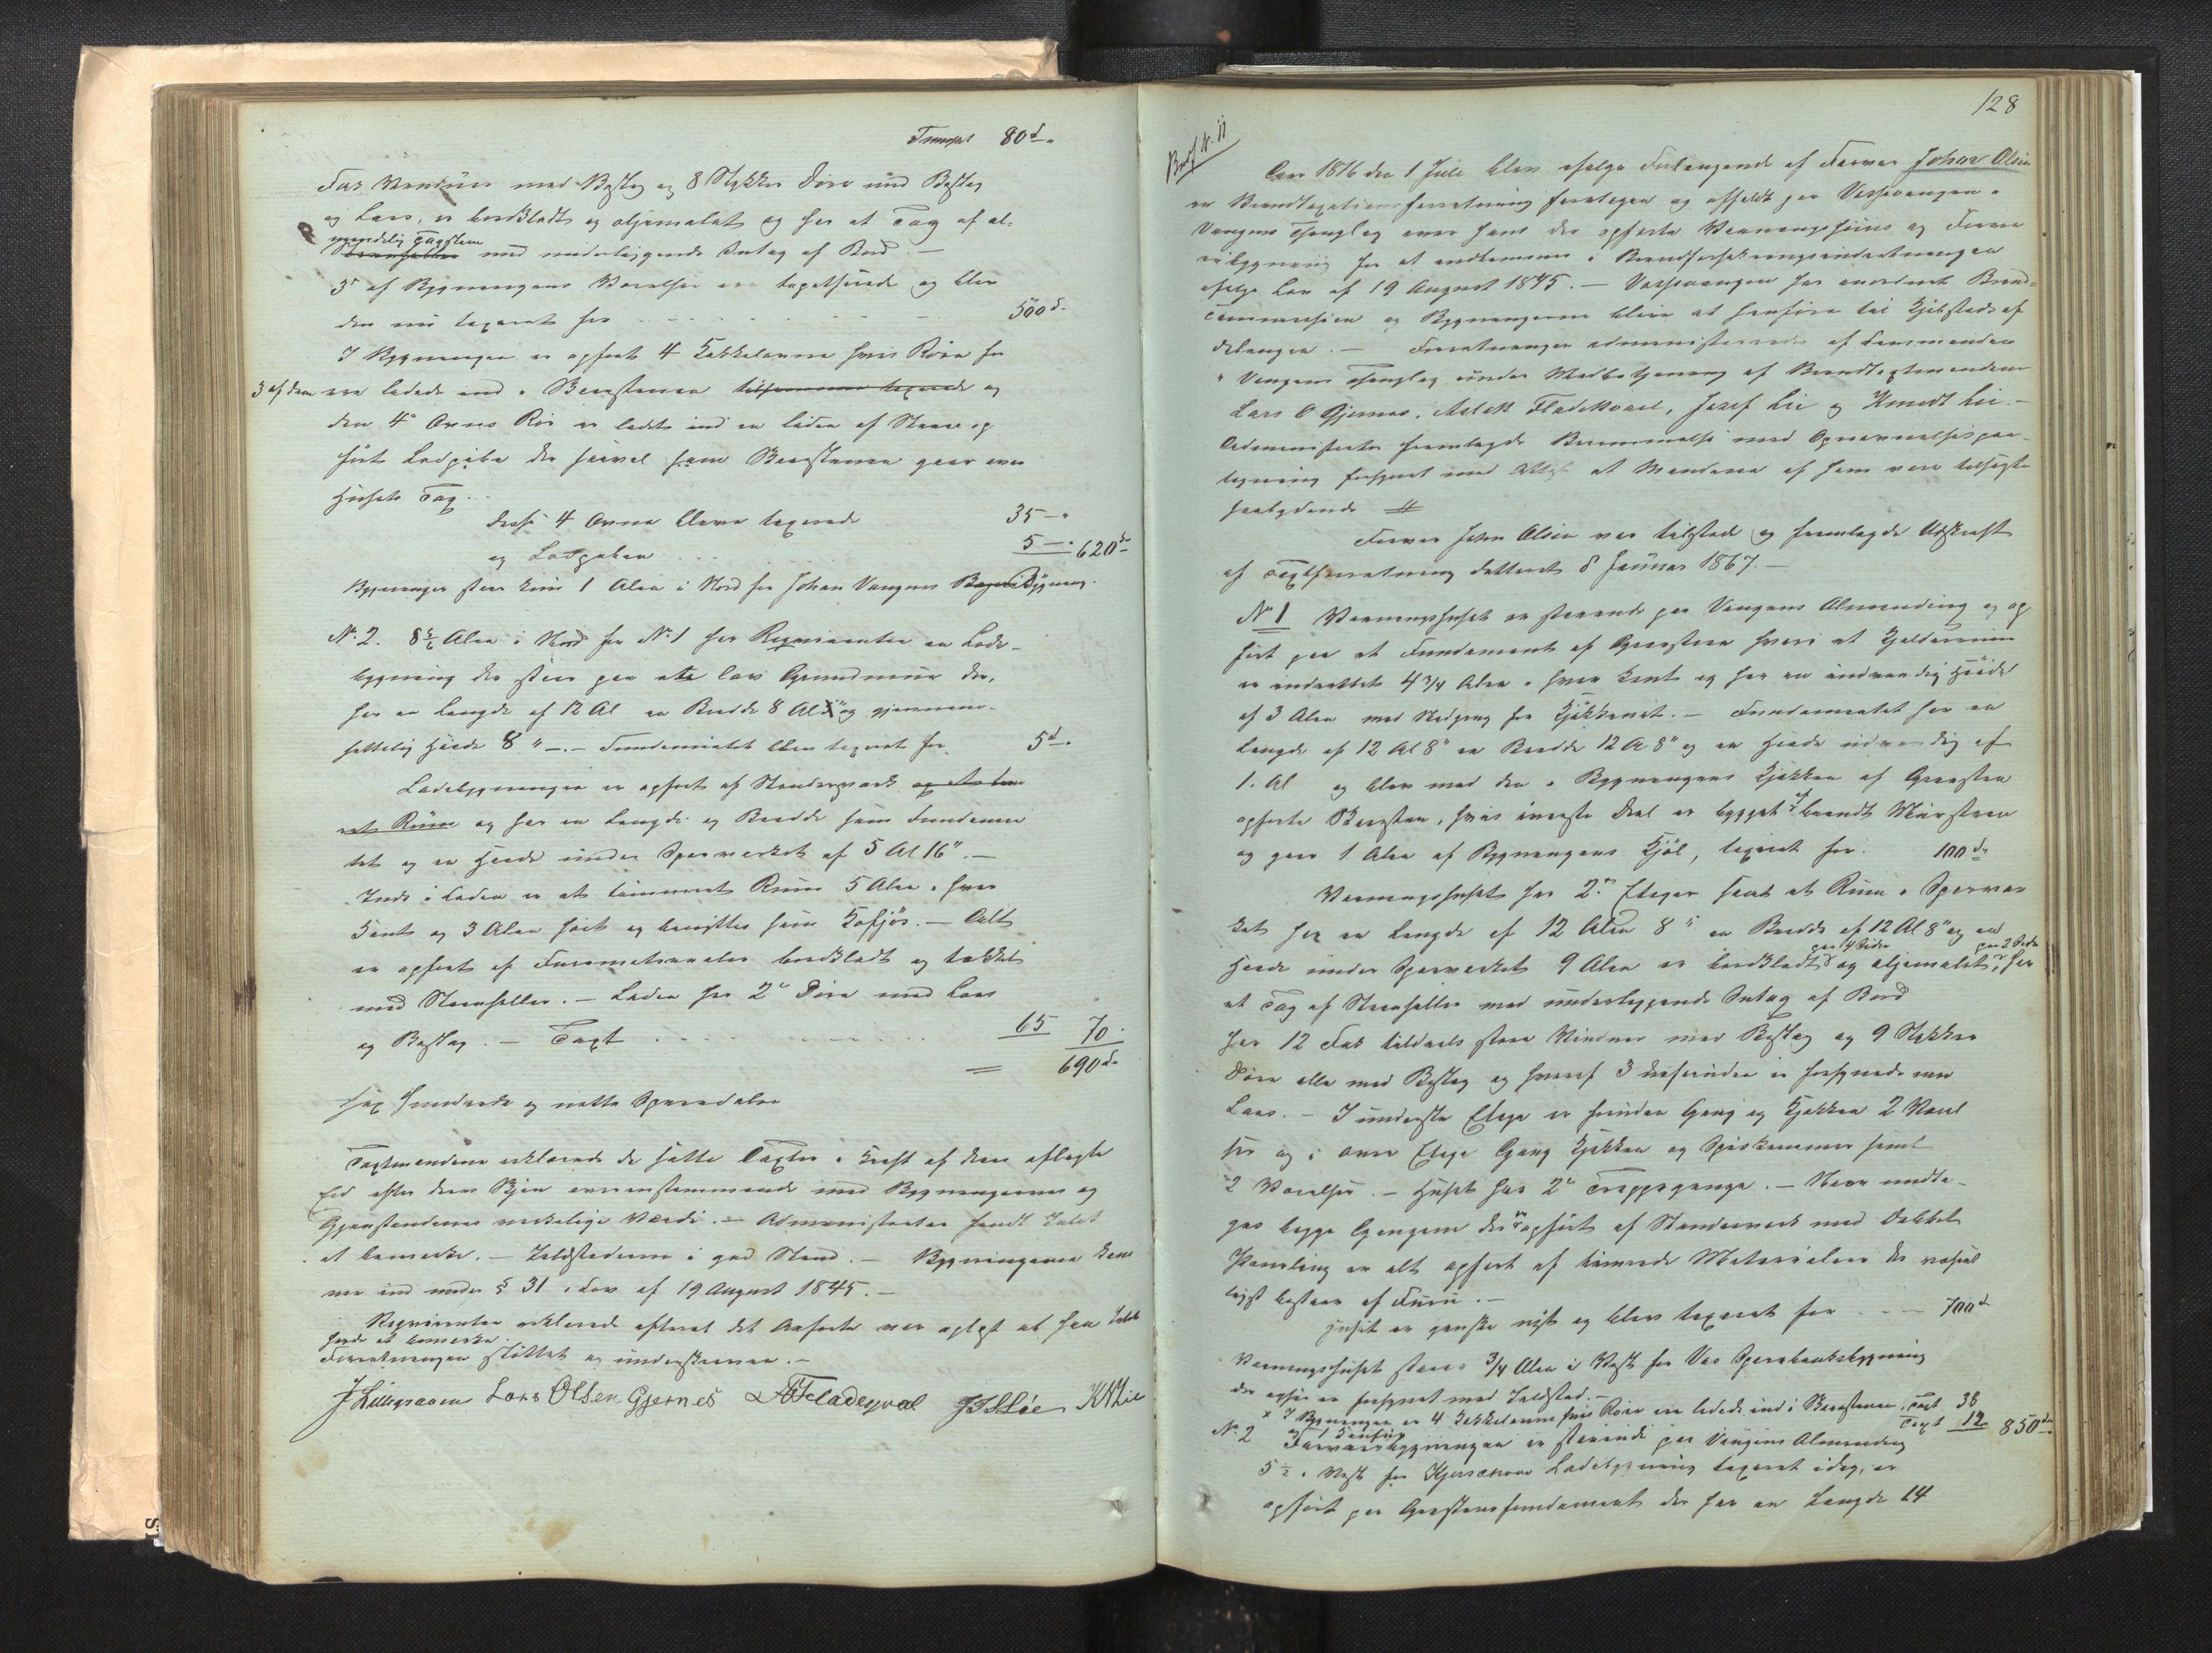 Transport 80 d -"
Fag Vinduer med Beslag og 8 Stykker Döre med Beslag
og Laas, er bordklædt og oljemalet og har et Tag af al-
mindelig Tagsteen
Steenheller med underliggende Intag af Bord. -
3 af Bygningens Værelser ere tapetserede og blev
den nu taxeret for - - - - - 500 d.
I Bygningen er opfört 4 Kakkelovne hvis Röre for
3 af dem ere ledede ind i Skorstenen tilsammen taxerede og
den 4de Ovns Rör er ledet ind en liden af Steen op
fört Ladpibe der saavel som Skorstenen gaar over
Husets Tag. -
disse 4 Ovne bleve taxerede 35 - "
og Ladpiben . . . 5 - " 620 d
Bygningen staar kun 1 Alen i Nord for Johan Vangens Bygning.
No. 2. 8 ½ Alen i Nord for No. 1 har Reqvirenten en Lade-
bygning der staar paa et lav Grundmuur der,
har en Længde af 12 Al en Bredde 8 Al " og gjennem-
snittelig Höide 8 " -. - Fundamentet blev taxeret for 5 d.
Ladebygningen er opfört af Stenderværk og et tøm
ret Rum og har en Længde og Bredde som Fundamen
tet og en Höide under Sperverket af 5 Al 16". -
Inde i Laden er et tömmret Rum 5 Alen i hver
Kant og 3 Alen höit og benyttes som Kofjös. - Alt
er opfört af Furumaterialer bordklædt og tækket
med Steenheller. - Laden har 2de Döre med Laas
og Beslag. - Taxt . . . . 65 70.
= 690 d.
Sex Hundrede og nitti Speciedaler
Taxtmændene erklærede de satte Taxter i Kraft af deres aflagte
Ed efter deres Skjön overensstemmende med Bygningernes og
Gjenstandenes virkelige Værdi. - Administrator fandt Intet
at bemærke. - Ildstederne i god Stand. - Bygningerne kom
me ind under § 31 i Lov af 19 August 1845. -
Reqvirenten erklærede efterat det Anförte var oplæst at han Intet
havde at bemærke.
Forretningen sluttet og underskreven. -
J Lillegraven Lars Olsen Gjernes A Fladeqval JJLie KNLie
128
Besf N. 11
Aar 1876 den 1 Juli blev efter Forlangende af Farver Johan Olsen
en Brandtaxationsforretning foretagen og afholdt paa Vossevangen i
Vangens Thinglag over hans der opförte Vaaningshuus og Farve
ribygning for at indlemmes i Brandforsikringsindretningen
ifölge Lov af 19 August 1845. - Vossevangen har anordnet Brand-
Commission og Bygningerne blive at henföre til Kjöbstadsaf
delingen. - Forretningen administreredes af Lensmanden
i Vangens Thinglag under Medbetjening af Brandtaxtmændene
Lars O Gjernes, Aslak Fladekval, Josef Lie og Knudt Lie. -
Administrator fremlagde Berammelse med Opnævnelsespaa-
tegning forsynet med Attest at Mændene af ham vare tilsagte
saalydende #
Farver Johan Olsen var tilstede og fremlagde Udskrift
af Taxtforretning dateret 8 Januar 1867. -
No 1 Vaaningshuset er staaende paa Vangens Almending og op
fört paa et Fundament af Graasten hvori et Kjelderrum
er indrettet 4 3/4 Alen i hver Kant og har en indvendig Höide
af 3 Alen med Nedgang fra Kjökkenet. - Fundamentet har en
Længde af 12 Al 8" en Bredde 12 A 8" og en Höide udvendig af
1. Al og blev med den i Bygningens Kjökken af Graasten
opförte Skorsten, hvis överste Deel er bygget af brændt Muursteen
og gaar 1 Alen af Bygningens Kjöl, taxeret for. 100 d.
Vaaningshuset har 2de Etager samt et Rum i Sperver
ket har en Længde af 12 Alen 8" en Bredde af 12 Al 8" og en
paa 4 Sider paa 2 Sider
Höide under Sperverket 9 Alen er bordklædt og oljemalet, har
et Tag af Steenheller med underliggende Intag af Bord
har 12 Fag tildeels store Vinduer med Beslag og 9 Stykker
Döre alle med Beslag og hvoraf 3 desuden er forsynede med
Laas. - I underste Etage er foruden Gang og Kjökken 2 Værel
ser og i övre Etage Gang Kjökken og Spiskammer samt
2 Værelser. - Huset har 2de Trappegange. - Naar undta-
ges begge Gangene der er opfört af Stenderverk med dobbelt
Paneling er alt opfört af tömrede Materialier der væsent
ligst bestaar af Furu. -
Huset er ganske nyt og blev taxeret for . - - 700 d
Vaaningshuset staar 3/4 Alen i Vest for Vos Sparebanksbygning
der ogsaa er forsynet med Ildsted. -
x I Bygningen er 4 Kakkelovne hvis Röre ere ledede ind i Skorstenen. Taxt 38
og 1 Komfur Taxt 12 850 d.
No. 2 Farveribygningen er staaende paa Vangens Almending
5 ½ i Vest for Kjersemoen Ladebygning taxeret idag, er
opfört paa Graastensfundament der har en Længde 14